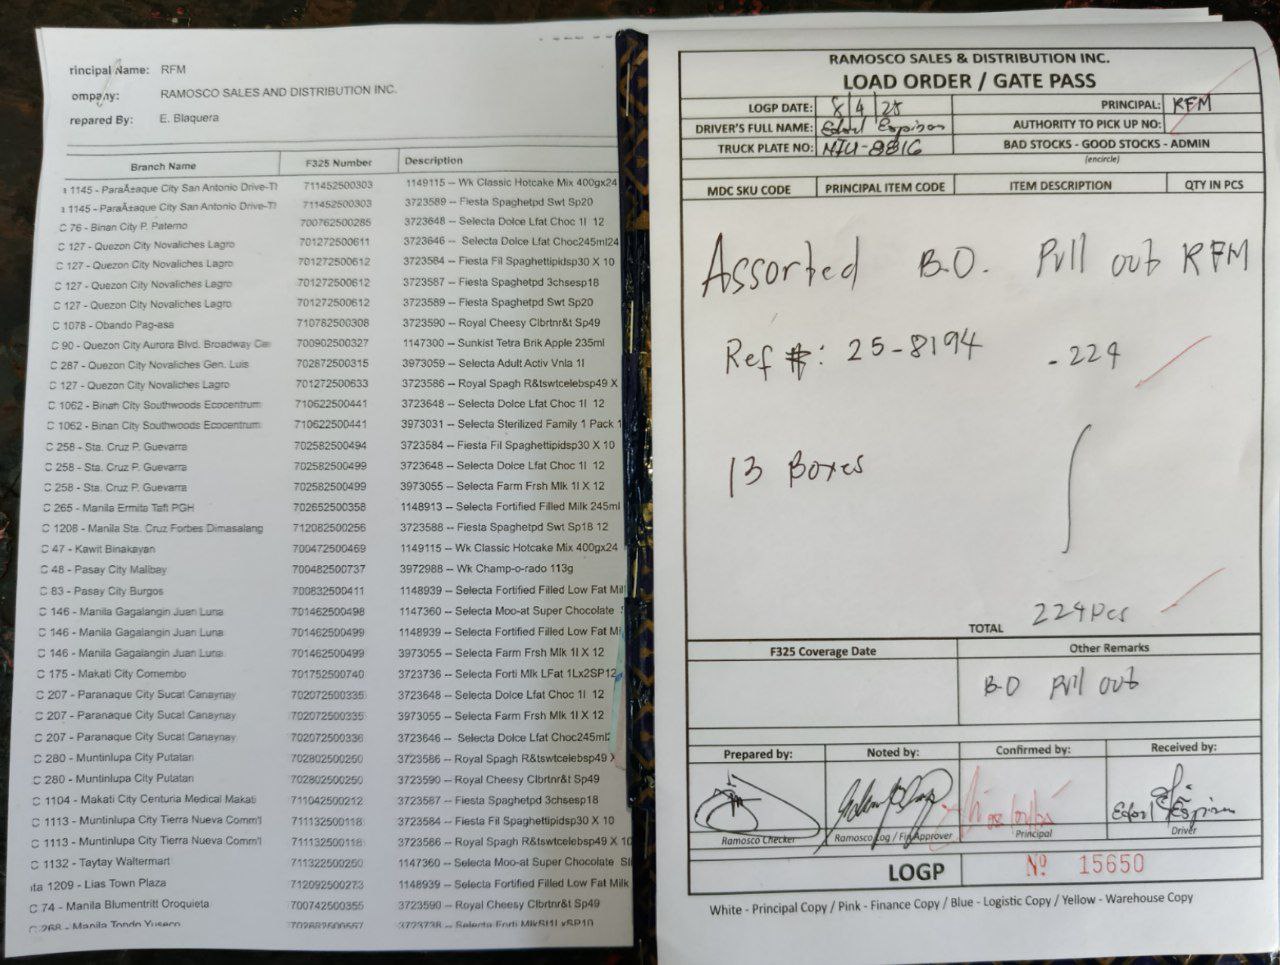 rincipal Name: RFM
ompany: RAMOSCO SALES AND DISTRIBUTION INC.
repared By: E. Blaquera
Branch Name F325 Number Description
1145 - ParaÃ±aque City San Antonio Drive-T 711452500303 1149115 -- Wk Classic Hotcake Mix 400gx24
1145 - ParaÃ±aque City San Antonio Drive-T 711452500303 3723589 -- Fiesta Spaghetpd Swt Sp20
C 76 - Binan City P. Paterno 700762500285 3723648 -- Selecta Dolce Lfat Choc 1l 12
C 127 - Quezon City Novaliches Lagro 701272500611 3723646 -- Selecta Dolce Lfat Choc245ml24
C 127 - Quezon City Novaliches Lagro 701272500612 3723584 -- Fiesta Fil Spaghettipidsp30 X 10
C 127 - Quezon City Novaliches Lagro 701272500612 3723587 -- Fiesta Spaghetpd 3chsesp18
C 127 - Quezon City Novaliches Lagro 701272500612 3723589 -- Fiesta Spaghetpd Swt Sp20
C 1078 - Obando Pag-asa 710782500308 3723590 -- Royal Cheesy Clbrtnr&t Sp49
C 90 - Quezon City Aurora Blvd. Broadway Ce 700902500327 1147300 -- Sunkist Tetra Brik Apple 235ml
C 287 - Quezon City Novaliches Gen. Luis 702872500315 3973059 -- Selecta Adult Activ Vnla 1l
C 127 - Quezon City Novaliches Lagro 701272500633 3723586 -- Royal Spagh R&tswtcelebsp49 X
C 1062 - Binan City Southwoods Ecocentrum 710622500441 3723648 -- Selecta Dolce Lfat Choc 1l 12
C 1062 - Binan City Southwoods Ecocentrum 710622500441 3973031 -- Selecta Sterilized Family 1 Pack 1
C 258 - Sta. Cruz P. Guevarra 702582500494 3723584 -- Fiesta Fil Spaghettipidsp30 X 10
C 258 - Sta. Cruz P. Guevarra 702582500499 3723648 -- Selecta Dolce Lfat Choc 1l 12
C 258 - Sta. Cruz P. Guevarra 702582500499 3973055 -- Selecta Farm Frsh Mlk 1l X 12
C 265 - Manila Ermita Taft PGH 702652500358 1148913 -- Selecta Fortified Filled Milk 245ml
C 1208 - Manila Sta. Cruz Forbes Dimasalang 712082500256 3723588 -- Fiesta Spaghetpd Swt Sp18 12
C 47 - Kawit Binakayan 700472500469 1149115 -- Wk Classic Hotcake Mix 400gx24
C 48 - Pasay City Malibay 700482500737 3972988 -- Wk Champ-o-rado 113g
C 83 - Pasay City Burgos 700832500411 1148939 -- Selecta Fortified Filled Low Fat Mil
C 146 - Manila Gagalangin Juan Luna 701462500498 1147360 -- Selecta Moo-at Super Chocolate
C 146 - Manila Gagalangin Juan Luna 701462500499 1148939 -- Selecta Fortified Filled Low Fat Mi
C 146 - Manila Gagalangin Juan Luna 701462500499 3973055 -- Selecta Farm Frsh Mlk 1l X 12
C 175 - Makati City Comembo 701752500740 3723736 -- Selecta Forti Mlk LFat 1Lx2SP12
C 207 - Paranaque City Sucat Canaynay 702072500335 3723648 -- Selecta Dolce Lfat Choc 1l 12
C 207 - Paranaque City Sucat Canaynay 702072500335 3973055 -- Selecta Farm Frsh Mlk 1l X 12
C 207 - Paranaque City Sucat Canaynay 702072500336 3723646 -- Selecta Dolce Lfat Choc245ml2
C 280 - Muntinlupa City Putatan 702802500250 3723586 -- Royal Spagh R&tswtcelebsp49 X
C 280 - Muntinlupa City Putatan 702802500250 3723590 -- Royal Cheesy Clbrtnr&t Sp49
C 1104 - Makati City Centuria Medical Makati 711042500212 3723587 -- Fiesta Spaghetpd 3chsesp18
C 1113 - Muntinlupa City Tierra Nueva Comm'l 711132500118 3723584 -- Fiesta Fil Spaghettipidsp30 X 10
C 1113 - Muntinlupa City Tierra Nueva Comm'l 711132500118 3723586 -- Royal Spagh R&tswtcelebsp49 X 10
C 1132 - Taytay Waltermart 711322500250 1147360 -- Selecta Moo-at Super Chocolate
ita 1209 - Lias Town Plaza 712092500273 1148939 -- Selecta Fortified Filled Low Fat Milk
C 74 - Manila Blumentritt Oroquieta 700742500355 3723590 -- Royal Cheesy Clbrtnr&t Sp49
C 268 - Manila Tondo Yuseco 702682500557 3723738 -- Selecta Forti
RAMOSCO SALES & DISTRIBUTION INC.
LOAD ORDER / GATE PASS
LOGP DATE: 8/4/25 PRINCIPAL: RFM
DRIVER'S FULL NAME: Edsel Espinas AUTHORITY TO PICK UP NO:
TRUCK PLATE NO: NIU-8816 BAD STOCKS - GOOD STOCKS - ADMIN
(encircle)
MDC SKU CODE PRINCIPAL ITEM CODE ITEM DESCRIPTION QTY IN PCS
Assorted B.O. Pull out RFM
Ref #: 25-8194 - 224
13 Boxes
TOTAL 224 Pcs
F325 Coverage Date Other Remarks
B.O Pull out
Prepared by: Noted by: Confirmed by: Received by:
Ramosco Checker Ramosco Log / Fin Approver Principal Driver
LOGP Nº 15650
White - Principal Copy / Pink - Finance Copy / Blue - Logistic Copy / Yellow - Warehouse Copy